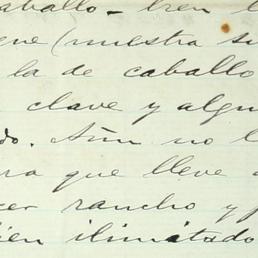 caballo - bien l
que (nuestra su
la de caballo
clave y algu
do. Aún no l
ra que lleve a
cer rancho y p
ien ilimitado